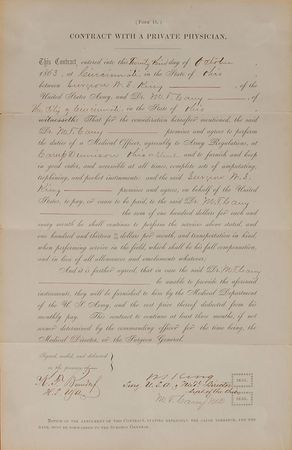 [FORM 18.]
CONTRACT WITH A PRIVATE PHYSICIAN.
This Contract, entered into this Twenty third day of October
1863, at Cincinnati in the State of Ohio
between Surgeon W. S. King, of the
United States Army, and Dr. M. T. Cary of
the City of Cincinnati in the State of Ohio
witnesseth: That for the consideration hereafter mentioned, the said
Dr. M T Cary promises and agrees to perform
the duties of a Medical Officer, agreeably to Army Regulations, at
Camp Dennison Ohio and to furnish and keep
in good order, and accessible at all times, complete sets of amputating,
trephining, and pocket instruments: and the said Surgeon W. S.
King promises and agrees, on behalf of the United
States, to pay, or cause to be paid, to the said Dr. M T Cary
the sum of one hundred dollars for each and
every month he shall continue to perform the services above stated, and
one hundred and thirteen dollars per month, and transportation in kind,
when performing service in the field, which shall be his full compensation,
and in lieu of all allowances and emoluments whatsoever.
And it is further agreed, that in case the said Dr. M T Cary
be unable to provide the aforesaid
instruments, they will be furnished to him by the Medical Department
of the U. S. Army, and the cost price thereof deducted from his
monthly pay. This contract to continue at least three months, if not
sooner determined by the commanding officer for the time being, the
Medical Director, or the Surgeon General.
Signed, sealed, and delivered
in the presence of
W. S. King [SEAL.]
Surg. U.S.A. Med. Director [SEAL.]
M. T. Cary M.D. [SEAL.]
NOTICE OF THE ANNULMENT OF THIS CONTRACT, STATING EXPLICITLY THE CAUSE THEREFOR, AND THE
DATE, MUST BE FORWARDED TO THE SURGEON GENERAL.